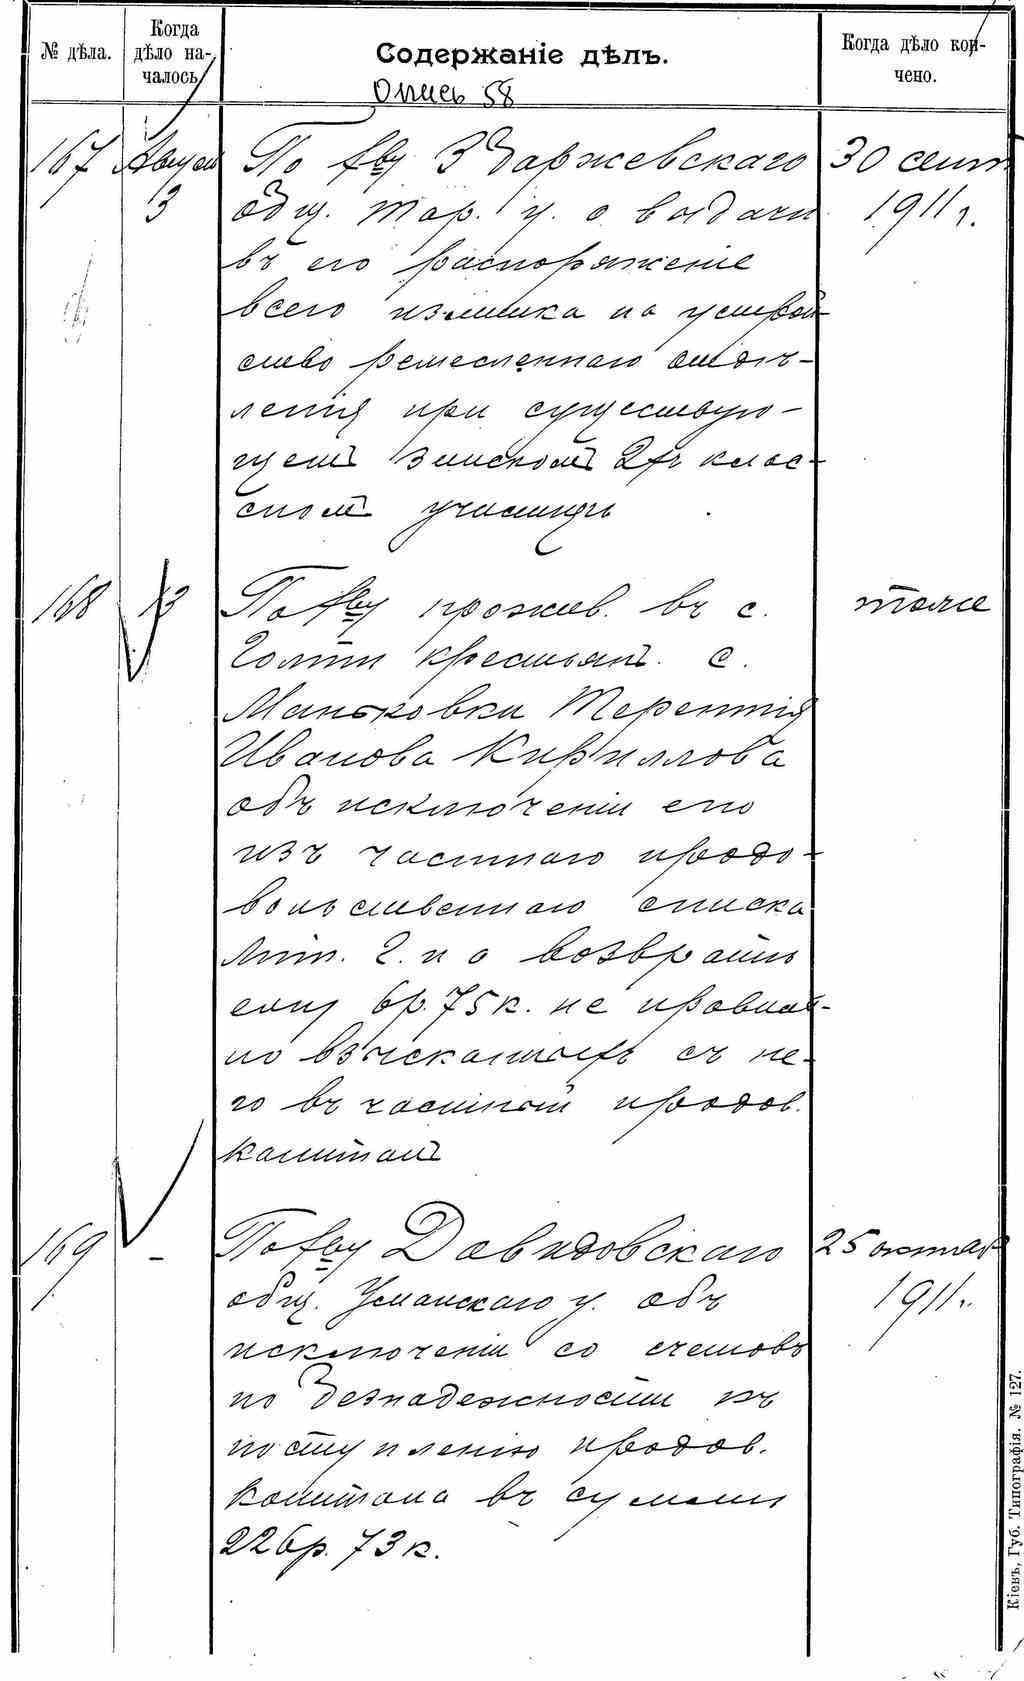 № дѣла.
Когда дѣло на-чалось
Содержаніе дѣлъ.
Когда дѣло кон-чено.
Опись 58
167 Август 3
По Збаржевскаго
общ. Тар. у. о выдачи
въ его распоряженіе
всего излишка на устрой
ство ремесленнаго отдѣ-
ленія при существую-
щемъ Земскомъ 2хъ клас-
сномъ училищѣ
30 сент.
1911 г.
168 13
По прожив. въ с.
Голтѣ крестьян. с.
Маньковки Терентія
Иванова Кириллова
объ исключеніи его
изъ частнаго продо-
вольственнаго списка
Лит. 2. и о возвратѣ
ему 6р. 75к. не правиль-
но взысканныхъ съ не-
го въ частный продов.
капиталъ
тоже
169 -
По Давидовскаго
общ. Уманскаго у. объ
исключеніи со счетовъ
по безнадежности къ
поступленію продов.
капитала въ суммѣ
226р. 73к.
25 октяб
1911 г.
Кіевъ, Губ. Типографія. № 127.